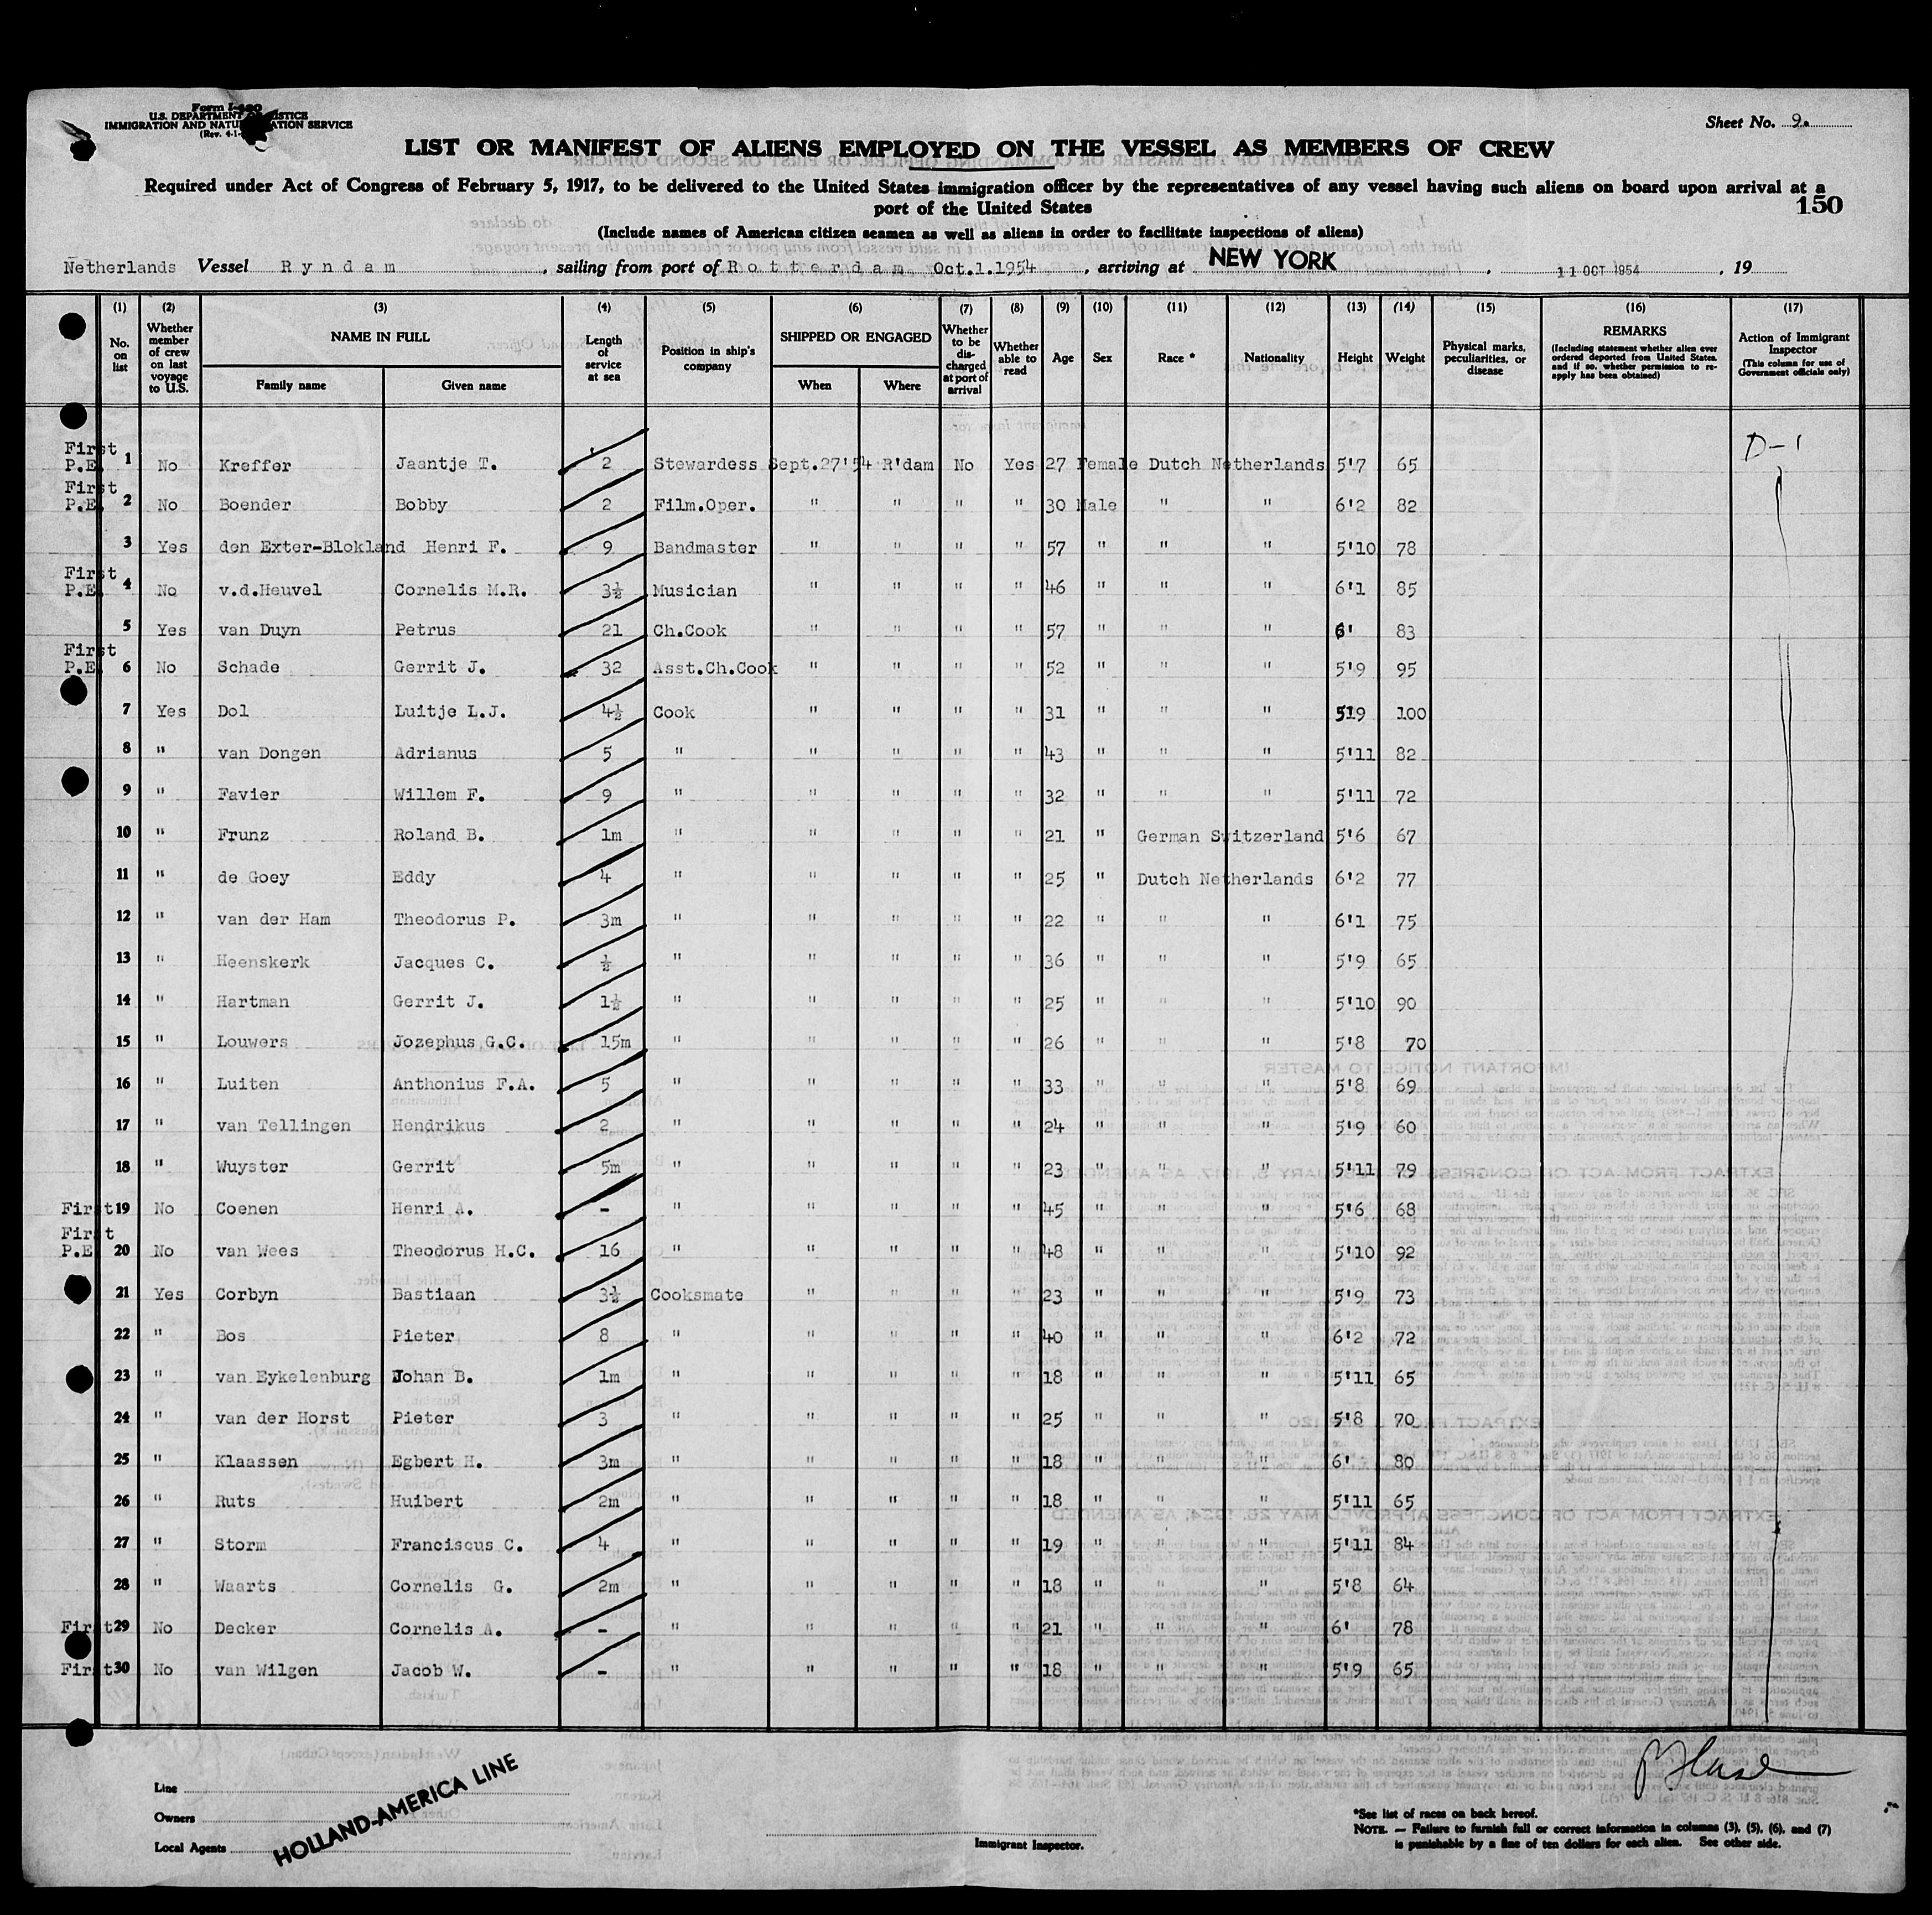 Form I-480
U.S. DEPARTMENT OF JUSTICE
IMMIGRATION AND NATURALIZATION SERVICE
(Rev. 4-1-
Sheet No. 9.
LIST OR MANIFEST OF ALIENS EMPLOYED ON THE VESSEL AS MEMBERS OF CREW
Required under Act of Congress of February 5, 1917, to be delivered to the United States immigration officer by the representatives of any vessel having such aliens on board upon arrival at a
port of the United States
150
(Include names of American citizen seamen as well as aliens in order to facilitate inspections of aliens)
Netherlands Vessel Ryndam, sailing from port of Rotterdam Oct.1.1954, arriving at NEW YORK, 11 OCT 1954, 19
(1) (2) (3) (4) (5) (6) (7) (8) (9) (10) (11) (12) (13) (14) (15) (16) (17)
No. on list
Whether member of crew on last voyage to U.S.
NAME IN FULL
Family name Given name
Length of service at sea
Position in ship's company
SHIPPED OR ENGAGED
When Where
Whether to be discharged at port of arrival
Whether able to read
Age
Sex
Race *
Nationality
Height
Weight
Physical marks, peculiarities, or disease
REMARKS
(Including statement whether alien ever ordered deported from United States, and if so, whether permission to reapply has been obtained)
Action of Immigrant Inspector
(This column for use of Government officials only)
D-1
First P.E. 1 No Kreffer Jaantje T. 2 Stewardess Sept.27'54 R'dam No Yes 27 Female Dutch Netherlands 5'7 65
First P.E. 2 No Boender Bobby 2 Film.Oper. " " " " 30 Male " " 6'2 82
3 Yes den Exter-Blokland Henri F. 9 Bandmaster " " " " 57 " " " 5'10 78
First P.E. 4 No v.d.Heuvel Cornelis M.R. 3½ Musician " " " " 46 " " " 6'1 85
5 Yes van Duyn Petrus 21 Ch.Cook " " " " 57 " " " 6' 83
First P.E. 6 No Schade Gerrit J. 32 Asst.Ch.Cook " " " " 52 " " " 5'9 95
7 Yes Dol Luitje L.J. 4½ Cook " " " " 31 " " " 5'9 100
8 " van Dongen Adrianus 5 " " " " " 43 " " " 5'11 82
9 " Favier Willem F. 9 " " " " " 32 " " " 5'11 72
10 " Frunz Roland B. 1m " " " " " 21 " German Switzerland 5'6 67
11 " de Goey Eddy 4 " " " " " 25 " Dutch Netherlands 6'2 77
12 " van der Ham Theodorus P. 3m " " " " " 22 " " " 6'1 75
13 " Heenskerk Jacques C. ½ " " " " " 36 " " " 5'9 65
14 " Hartman Gerrit J. 1½ " " " " " 25 " " " 5'10 90
15 " Louwers Jozephus G.C. 15m " " " " " 26 " " " 5'8 70
16 " Luiten Anthonius F.A. 5 " " " " " 33 " " " 5'8 69
17 " van Tellingen Hendrikus 2 " " " " " 24 " " " 5'9 60
18 " Wuyster Gerrit 5m " " " " " 23 " " " 5'11 79
First 19 No Coenen Henri A. - " " " " " 45 " " " 5'6 68
First P.E 20 No van Wees Theodorus H.C. 16 " " " " " 48 " " " 5'10 92
21 Yes Corbyn Bastiaan 3½ Cooksmate " " " " 23 " " " 5'9 73
22 " Bos Pieter 8 " " " " " 40 " " " 6'2 72
23 " van Eykelenburg Johan B. 1m " " " " " 18 " " " 5'11 65
24 " van der Horst Pieter 3 " " " " " 25 " " " 5'8 70
25 " Klaassen Egbert H. 3m " " " " " 18 " " " 6' 80
26 " Ruts Huibert 2m " " " " " 18 " " " 5'11 65
27 " Storm Franciscus C. 4 " " " " " 19 " " " 5'11 84
28 " Waarts Cornelis G. 2m " " " " " 18 " " " 5'8 64
First 29 No Decker Cornelis A. - " " " " " 21 " " " 6' 78
First 30 No van Wilgen Jacob W. - " " " " " 18 " " " 5'9 65
Line
Owners
Local Agents
HOLLAND-AMERICA LINE
Immigrant Inspector.
*See list of races on back hereof.
NOTE. — Failure to furnish full or correct information in columns (3), (5), (6), and (7)
is punishable by a fine of ten dollars for each alien. See other side.